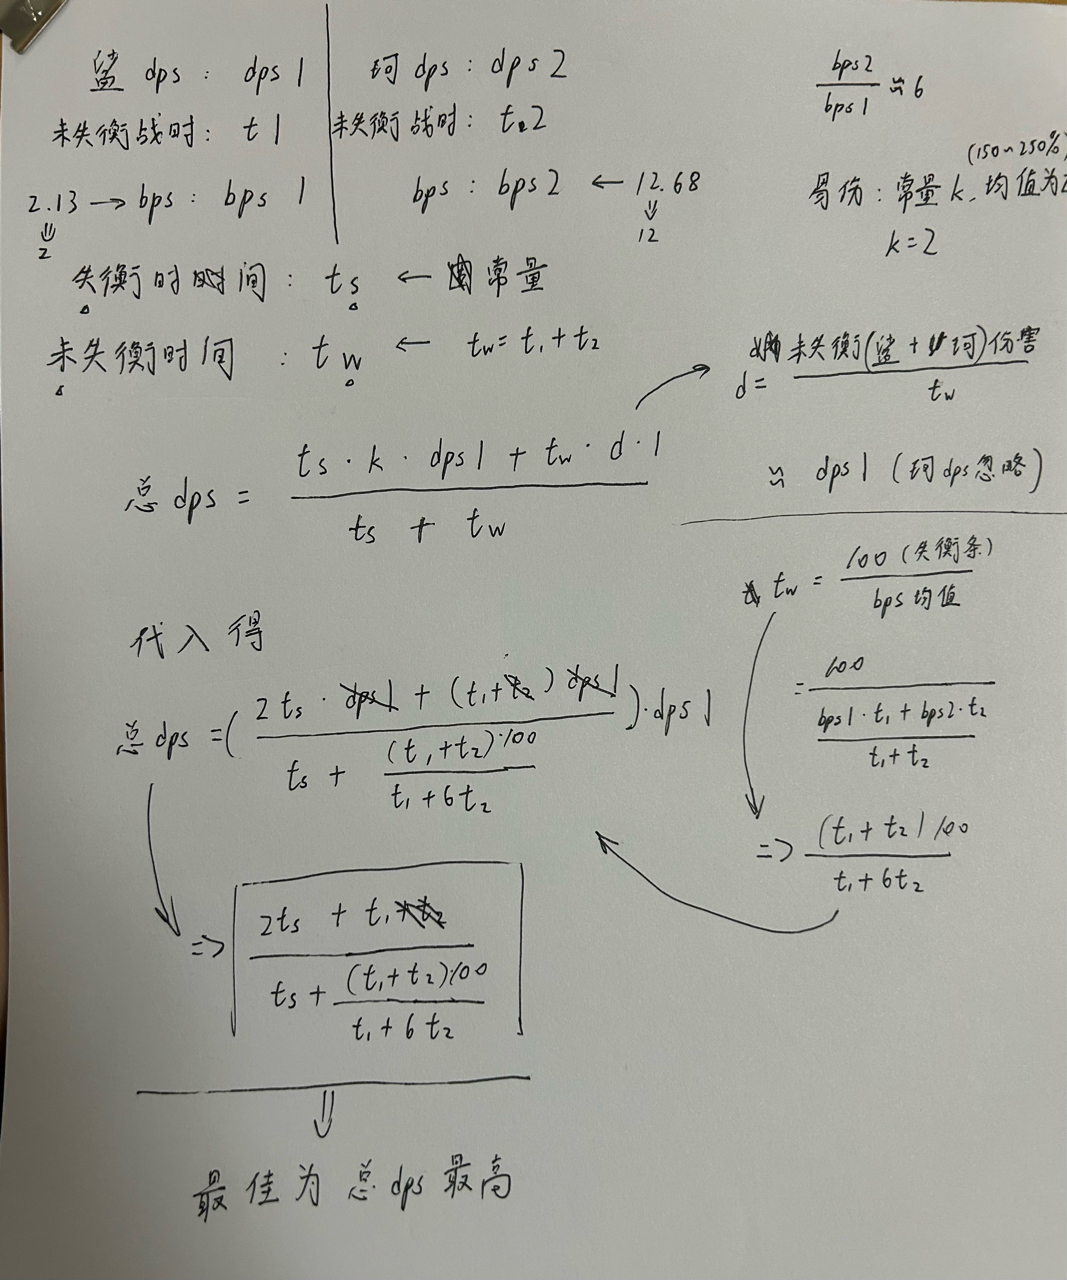 鲨 dps : dps 1
未失衡战时: t 1
2.13 → bps : bps 1
⇓
2
珂 dps : dps 2
未失衡战时: t 2
bps : bps 2 ← 12.68
⇓
12
bps2 / bps1 ≈ 6
(150~250%)
易伤: 常量 k, 均值为2
k=2
失衡时时间: ts ← 常量
未失衡时间: tw ← tw = t₁ + t₂
d = 未失衡(鲨 + 珂)伤害 / tw
≈ dps 1 (珂 dps 忽略)
总 dps = (ts · k · dps 1 + tw · d · 1) / (ts + tw)
tw = 100 (失衡条) / bps 均值
= 100 / ((bps1 · t₁ + bps2 · t₂) / (t₁ + t₂))
=> (t₁ + t₂) 100 / (t₁ + 6t₂)
代入得
总 dps = ( (2 ts · dps 1 + (t₁ + t₂) dps 1) / (ts + (t₁ + t₂)·100 / (t₁ + 6t₂)) ) · dps 1
=> (2ts + t₁) / (ts + (t₁ + t₂)·100 / (t₁ + 6t₂))
⇓
最佳为总 dps 最高